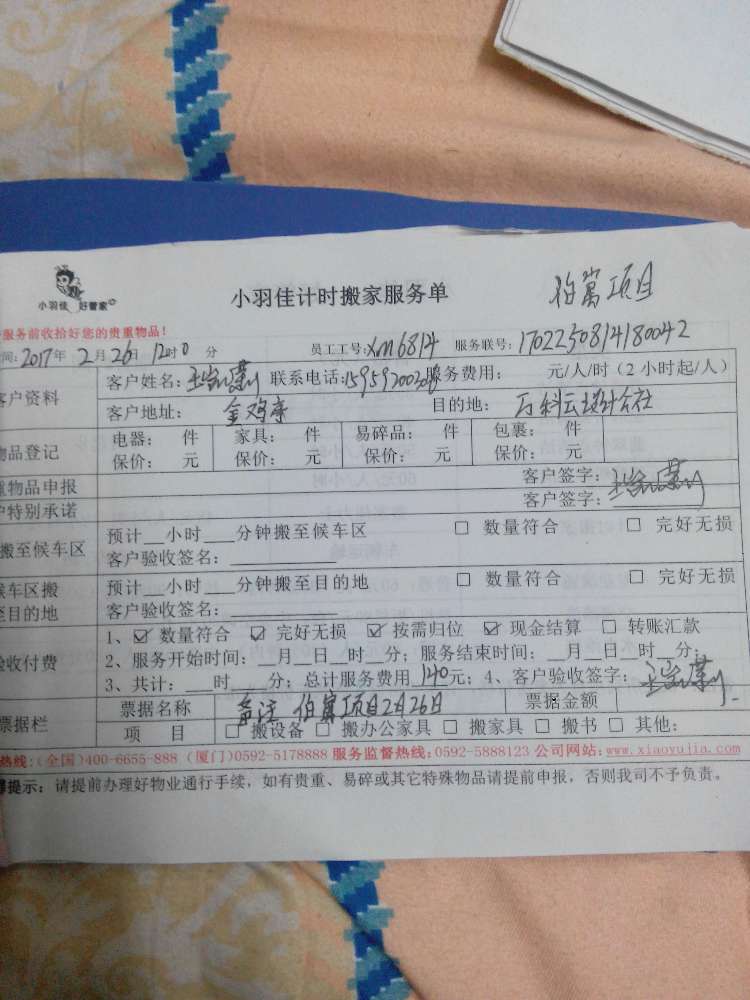 小羽佳 好管家
小羽佳计时搬家服务单
项目
服务前收拾好您的贵重物品！
间：2017年 2月26日 12时0分 员工工号：xm6814 服务联号：1702250814180042
客户资料 客户姓名： 联系电话： 服务费用： 元/人/时（2小时起/人）
客户地址：金鸡亭 目的地：万科云
物品登记 电器： 件 家具： 件 易碎品： 件 包裹： 件
保价： 元 保价： 元 保价： 元 保价： 元
重物品申报 客户签字：
户特别承诺 客户签字：
搬至候车区 预计__小时___分钟搬至候车区 □ 数量符合 □ 完好无损
客户验收签名：
候车区搬 预计__小时___分钟搬至目的地 □ 数量符合 □ 完好无损
至目的地 客户验收签名：
验收付费 1、☑ 数量符合 ☑ 完好无损 ☑ 按需归位 ☑ 现金结算 □ 转账汇款
2、服务开始时间：__月__日__时__分；服务结束时间：__月__日__时__分；
3、共计：___时___分；总计服务费用 140元；4、客户验收签字：
票据栏 票据名称 备注 项目2月26日 票据金额
项 目 □ 搬设备 □ 搬办公家具 □ 搬家具 □ 搬书 □ 其他：
热线：(全国)400-6655-888 (厦门)0592-5178888 服务监督热线：0592-5888123 公司网站：www.xiaoyujia.com
提示：请提前办理好物业通行手续，如有贵重、易碎或其它特殊物品请提前申报，否则我司不予负责。